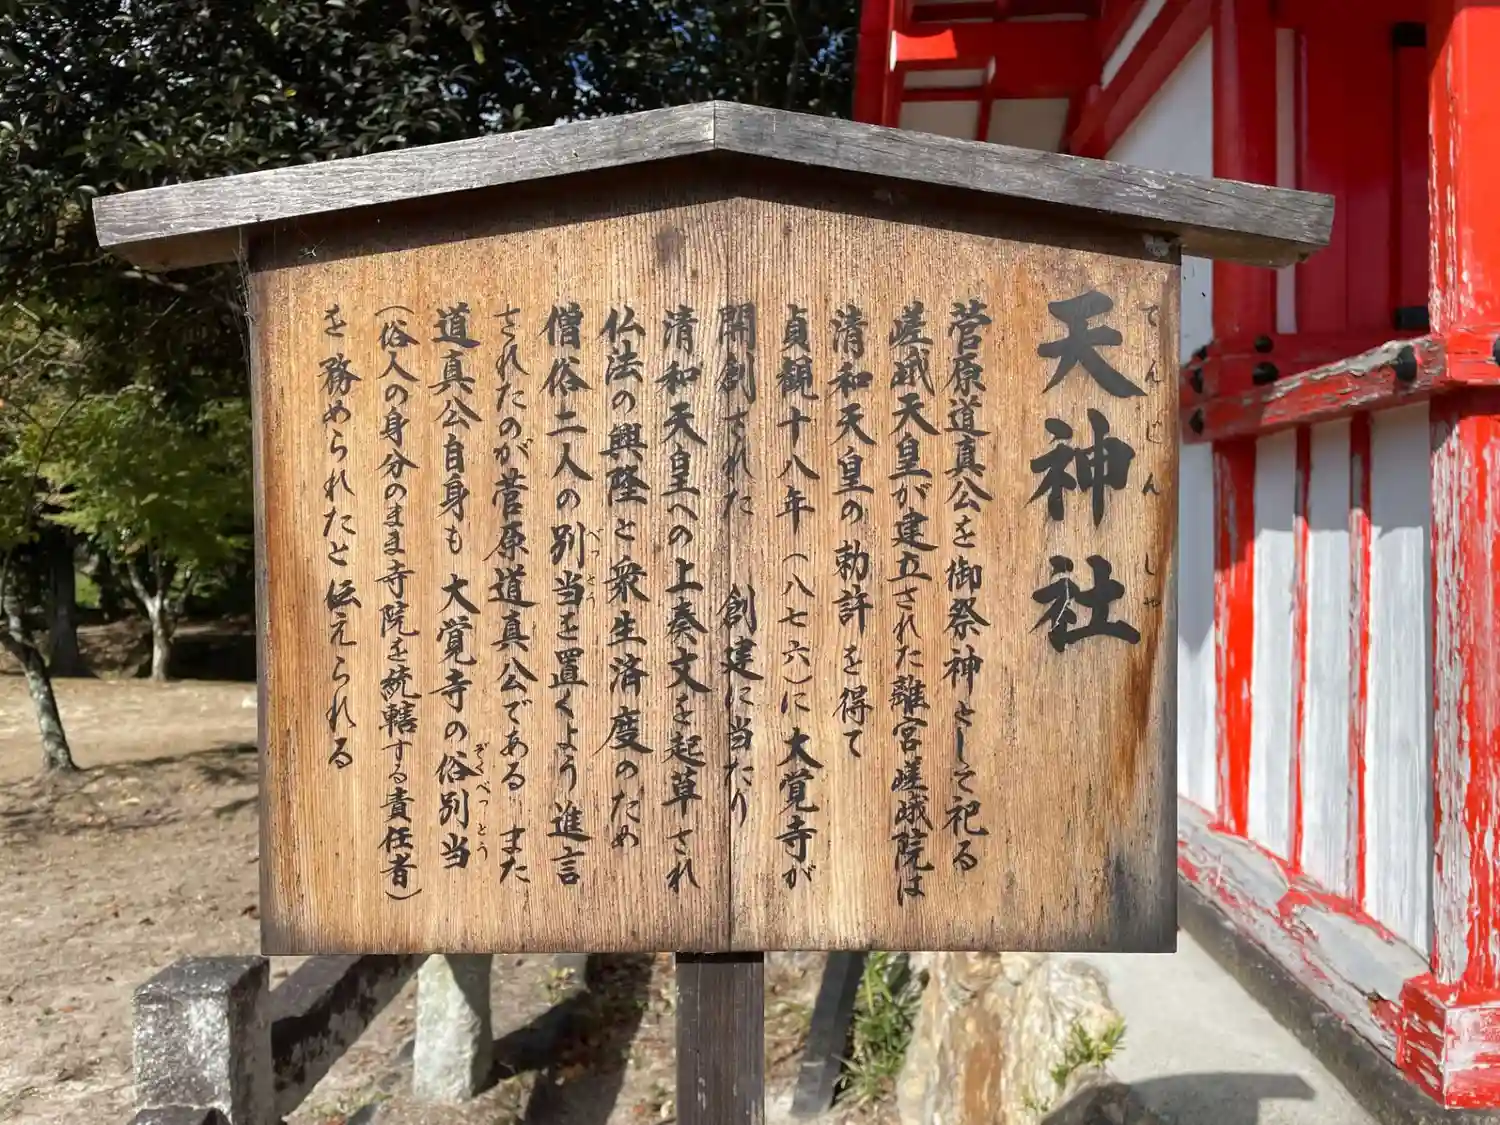 天神社
てんじんしゃ
菅原道真公を御祭神として祀る
嵯峨天皇が建立された離宮嵯峨院は
清和天皇の勅許を得て
貞観十八年（八七六）に大覚寺が
開創された 創建に当たり
清和天皇への上奏文を起草され
仏法の興隆と衆生済度のため
僧俗二人の別当を置くよう進言
べっとう
されたのが菅原道真公である また
道真公自身も 大覚寺の俗別当
ぞくべっとう
（俗人の身分のまま寺院を統轄する責任者）
を務められたと伝えられる